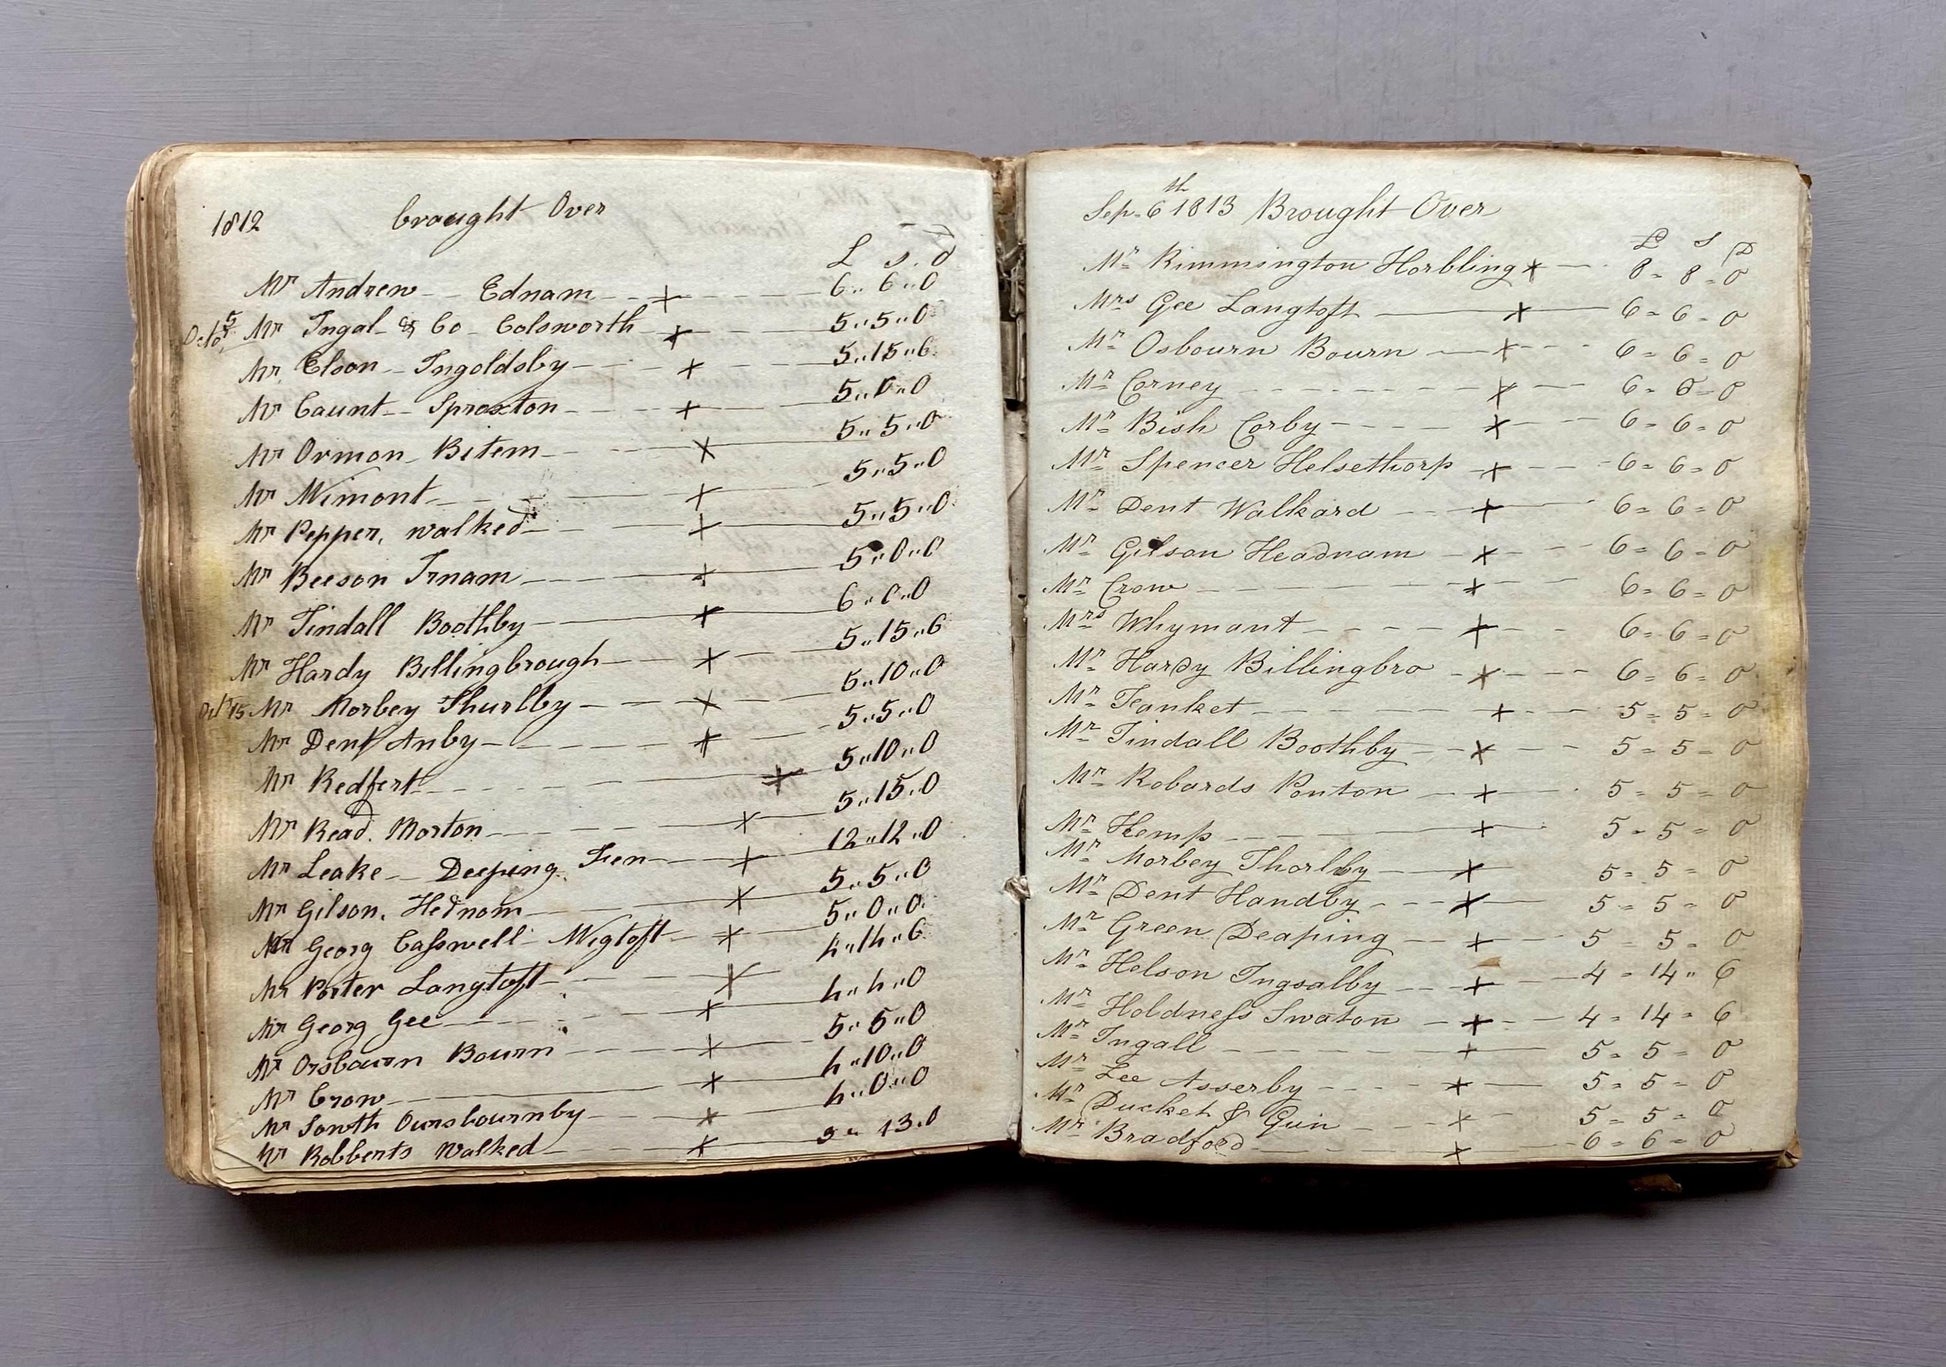 1812 brought Over
L s. d
Mr Andrew Ednam 6 " 6 " 0
Octo 5 Mr Ingal & Co Colsworth 5 " 5 " 0
Mr Elson Ingoldsby 5 " 15 " 6
Mr Caunt Sproxton 5 " 0 " 0
Mr Ormon Bitem 5 " 5 " 0
Mr Wimont 5 " 5 " 0
Mr Pepper, walked 5 " 5 " 0
Mr Beeson Irnam 5 " 0 " 0
Mr Tindall Boothby 6 " 0 " 0
Mr Hardy Billingbrough 5 " 15 " 6
Oct 15 Mr Morbey Thurlby 5 " 10 " 0
Mr Dent Anby 5 " 5 " 0
Mr Redfert 5 " 10 " 0
Mr Read. Morton 5 " 15 " 0
Mr Leake Deeping Fen 12 " 12 " 0
Mr Gilson. Hednom 5 " 5 " 0
Mr Georg Casswell Wigtoft 5 " 0 " 0
Mr Porter Langtoft 4 " 14 " 6
Mr Georg Gee 4 " 4 " 0
Mr Orsbourn Bourn 5 " 5 " 0
Mr Crow 4 " 10 " 0
Mr South Ounsbournby 4 " 0 " 0
Mr Robberts Walked 13 . 0
Sep. 6th 1813 Brought Over
L S D
Mr Rimmington Horbling 8 = 8 = 0
Mrs Gee Langtoft 6 = 6 = 0
Mr Osbourn Bourn 6 = 6 = 0
Mr Corney 6 = 6 = 0
Mr Bish Corby 6 = 6 = 0
Mr Spencer Helsethorp 6 = 6 = 0
Mr Dent Walkard 6 = 6 = 0
Mr Gilson Headnam 6 = 6 = 0
Mr Crow 6 = 6 = 0
Mrs Whymant 6 = 6 = 0
Mr Hardy Billingbro 6 = 6 = 0
Mr Tanket 5 = 5 = 0
Mr Tindall Boothby 5 = 5 = 0
Mr Robards Ponton 5 = 5 = 0
Mr Kemp 5 = 5 = 0
Mr Morbey Thorlby 5 = 5 = 0
Mr Dent Handby 5 = 5 = 0
Mr Green Deaping 5 = 5 = 0
Mr Helson Ingsalby 4 = 14 " 6
Mr Holdness Swaton 4 = 14 = 6
Mr Ingall 5 = 5 = 0
Mr Lee Asserby 5 = 5 = 0
Mr Ducket & Guin 5 = 5 = 0
Mr Bradford 6 = 6 = 0